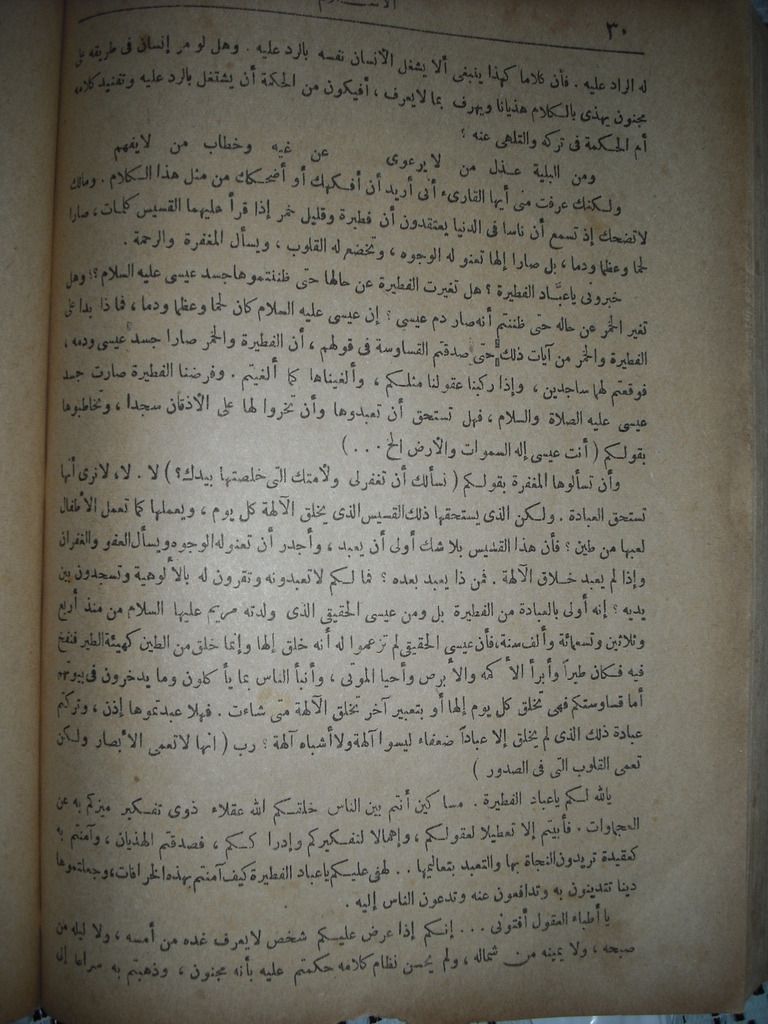 ٣٠
له الراد عليه . فأن كلاما كهذا ينبغى ألا يشغل الأنسان نفسه بالرد عليه . وهل لو مر إنسان فى طريقه على
مجنون يهذى بالكلام هذيانا ويهرف بما لايعرف ، أفيكون من الحكمة أن يشتغل بالرد عليه وتفنيد كلامه
أم الحكمة فى تركه والتلهى عنه ؟
ومن البلية عذل من لا يرعوى عن غيه وخطاب من لايفهم
ولكنك عرفت منى أيها القارىء أنى أريد أن أفكهك أو أضحكك من مثل هذا الكلام . ومالك
لاتضحك إذ تسمع أن ناسا فى الدنيا يعتقدون أن فطيرة وقليل خمر إذا قرأ عليهما القسيس كلمات ، صارا
لحما وعظما ودما ، بل صارا إلها تعنو له الوجوه ، وتخضع له القلوب ، ويسأل المغفرة والرحمة .
خبرونى ياعبَّاد الفطيرة ؟ هل تغيرت الفطيرة عن حالها حتى ظننتموها جسد عيسى عليه السلام ؟! وهل
تغير الخمر عن حاله حتى ظننتم أنه صار دم عيسى ؟ إن عيسى عليه السلام كان لحما وعظما ودما ، فماذا بدا على
الفطيرة والخمر من آيات ذلك حتى صدقتم القساوسة فى قولهم ، أن الفطيرة والخمر صارا جسد عيسى ودمه ،
فوقعتم لهما ساجدين ، وإذا ركبنا عقولنا مثلكم ، وألغيناها كما ألغيتم . وفرضنا الفطيرة صارت جسد
عيسى عليه الصلاة والسلام ، فهل تستحق أن تعبدوها وأن تخروا لها على الأذقان سجدا ، وتخاطبوها
بقولكم ( أنت عيسى إله السموات والأرض الخ . . . )
وأن تسألوها المغفرة بقولكم ( نسألك أن تغفر لى ولأمتك التى خلصتها بيدك ؟ ) لا . لا ، لانرى أنها
تستحق العبادة . ولكن الذى يستحقها ذلك القسيس الذى يخلق الآلهة كل يوم ، ويعملها كما تعمل الأطفال
لعبها من طين ؟ فأن هذا القسيس بلا شك أولى أن يعبد ، وأجدر أن تعنو له الوجوه ويسأل العفو والغفران
وإذا لم يعبد خلاق الآلهة . فمن ذا يعبد بعده ؟ فما لكم لاتعبدونه وتقرون له بالألوهية وتسجدون بين
يديه ؟ إنه أولى بالعبادة من الفطيرة بل ومن عيسى الحقيقى الذى ولدته مريم عليها السلام من منذ أربع
وثلاثين وتسعمائة وألف سنة ، فأن عيسى الحقيقى لم تزعموا له أنه خلق إلها وإنما خلق من الطين كهيئة الطير فنفخ
فيه فكان طيراً وأبرأ الأكمه والأبرص وأحيا الموتى ، وأنبأ الناس بما يأكلون وما يدخرون فى بيوتهم
أما قساوستكم فهى تخلق كل يوم إلها أو بتعبير آخر تخلق الآلهة متى شاءت . فهلا عبدتموها إذن ، وتركتم
عبادة ذلك الذى لم يخلق إلا عباداً ضعفاء ليسوا آلهة ولا أشباه آلهة ؟ رب ( انها لاتعمى الأبصار ولكن
تعمى القلوب التى فى الصدور )
يالله لكم ياعباد الفطيرة . مساكين أنتم بين الناس خلقكم الله عقلاء ذوى تفكير ميزكم به عن
العجماوات . فأبيتم إلا تعطيلا لعقولكم ، وإهمالا لتفكيركم وإدراككم ، فصدقتم الهذيان ، وآمنتم به
كعقيدة تريدون النجاة بها والتعبد بتعاليمها . . لهفى عليكم ياعباد الفطيرة كيف آمنتم بهذه الخرافات ، وجعلتموها
دينا تتدينون به وتدافعون عنه وتدعون الناس إليه .
يا أطباء العقول أفتونى . . . إنكم إذا عرض عليكم شخص لايعرف غده من أمسه ، ولا ليله من
صبحه ، ولا يمينه من شماله ، ولم يحسن نظام كلامه حكمتم عليه بأنه مجنون ، وذهبتم به سراعا إلى